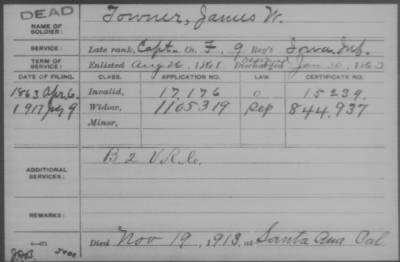 DEAD
NAME OF SOLDIER: Towner, James W.
SERVICE: Late rank, Capt. Co. F, 9 Reg't Iowa Inf.
TERM OF SERVICE: Enlisted Aug 26, 1861 Discharged Jan 30, 1863
DATE OF FILING. CLASS. APPLICATION NO. LAW. CERTIFICATE NO.
1863 Apr 6. Invalid, 17,176 15239.
1917 July 9 Widow, 1105319 Sep 844,937
Minor,
ADDITIONAL SERVICES: B 2 V.R.C.
REMARKS:
Died Nov 19, 1913, at Santa Ana Cal.